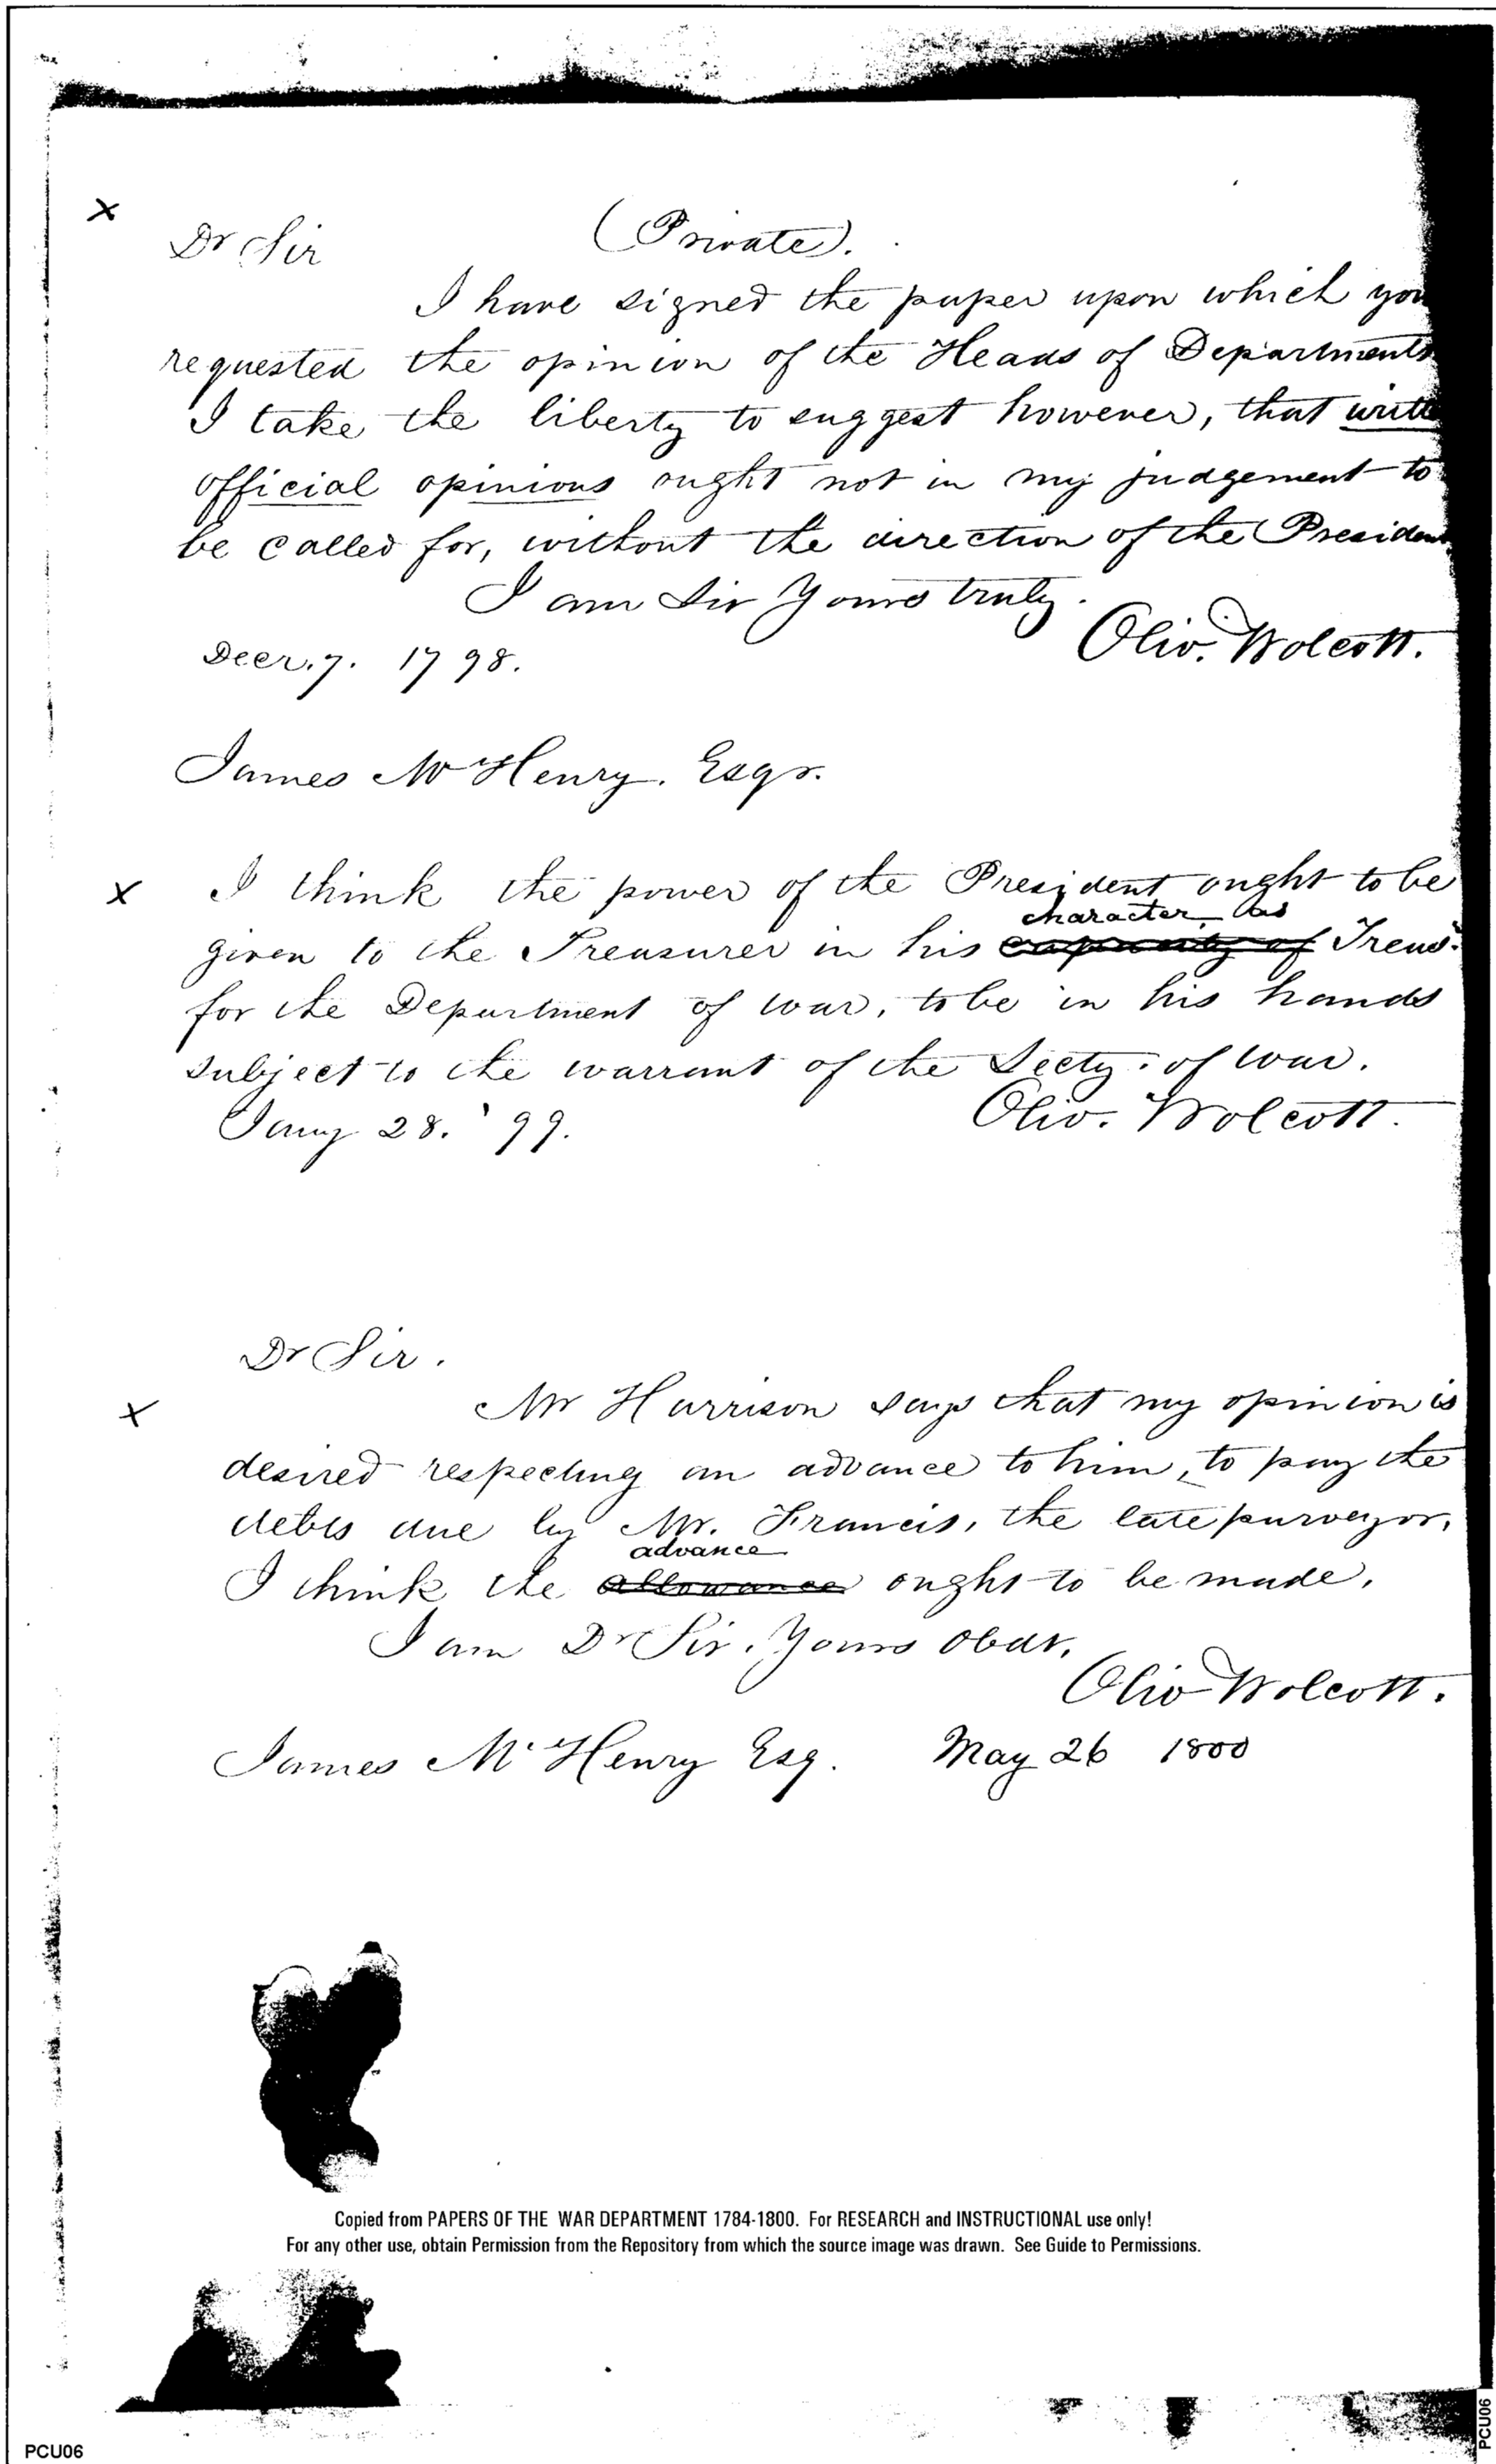 x
(Private).
Dr Sir
I have signed the paper upon which you
requested the opinion of the Heads of Departments
I take the liberty to suggest however, that writte
official opinions ought not in my judgement to
be called for, without the direction of the President
I am Sir Yours truly.
Oliv. Wolcott.
Decr. 7. 1798.
James McHenry. Esqr.
x I think the power of the President ought to be
character as
given to the Treasurer in his capacity of Treas.
for the Department of war, to be in his hands
subject to the warrant of the Secty. of war.
Oliv. Wolcott.
Jany 28. '99.
Dr Sir.
x Mr Harrison says that my opinion is
desired respecting an advance to him, to pay the
debts due by Mr. Francis, the late purveyor,
advance
I think the allowance ought to be made.
I am Dr Sir. Yours Obdt.
Oliv Wolcott.
James McHenry Esq. May 26 1800
Copied from PAPERS OF THE WAR DEPARTMENT 1784-1800. For RESEARCH and INSTRUCTIONAL use only!
For any other use, obtain Permission from the Repository from which the source image was drawn. See Guide to Permissions.
PCU06
PCU06